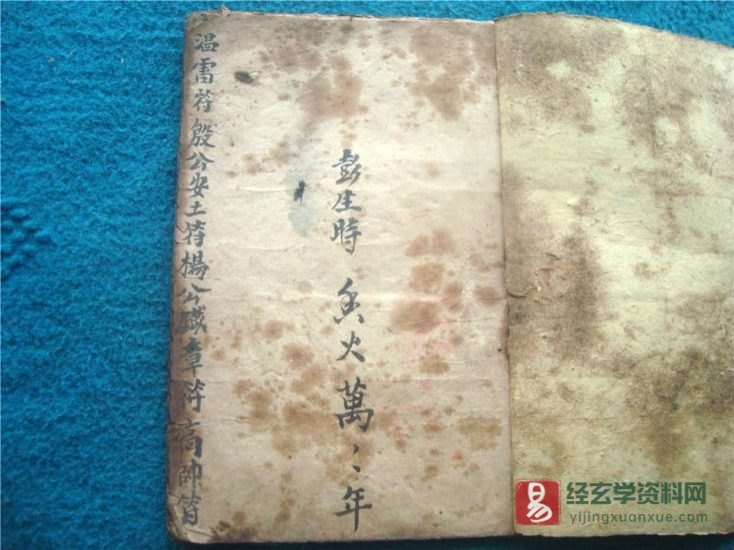 温雷符殷公安土符楊公鐵章符高帥符
彭生時 香火萬〻年
易 经玄学资料网
yijingxuanxue.com